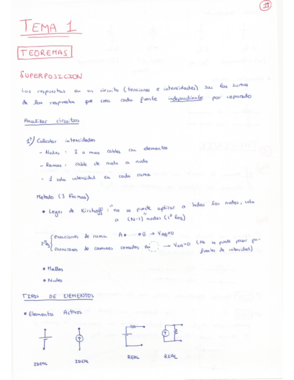 TEMA 1
TEOREMAS
SUPERPOSICION
Las respuestas en un circuito (tensiones e intensidades) son la suma
de las respuestas que crea cada fuente independiente por separado
Analizar circuitos
1º) Calcular intensidades
- Nudos: 3 o mas cables con elementos
- Ramas: cable de nudo a nudo
- 1 sola intensidad en cada rama
Metodo (3 formas)
• Leyes de Kirchoff: no se puede aplicar a todos los nudos, solo
a (N-1) nudos (1ª ley)
2ª ley Ecuaciones de ramas A • → • B → VAB=0
Ecuaciones de caminos cerrados → VAA=0 (No se puede pasar por
fuente de intensidad)
• Mallas
• Nudos
TIPOS DE ELEMENTOS
• Elementos Activos
IDEAL IDEAL REAL REAL